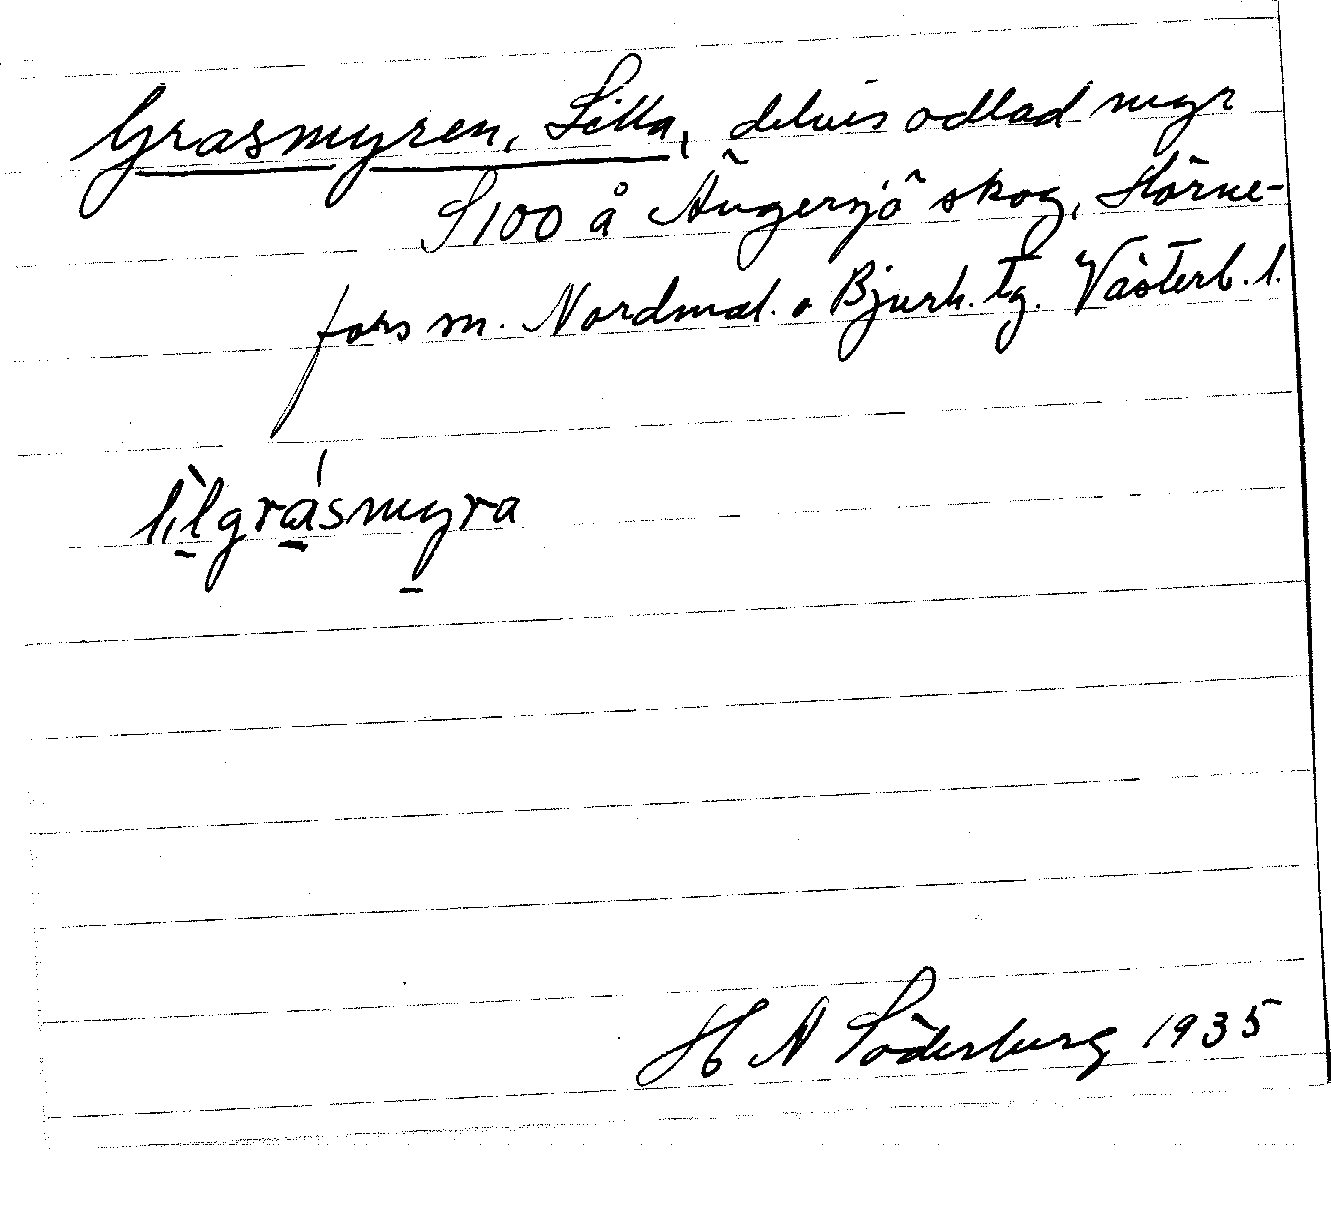 Grasmyren, Lilla, delvis odlad myr
S 100 å Ängersjö skog, Hörne-
fors sn. Nordmal. o Bjurh. tg. Västerb. l.
lìlgrásmyra
H N Söderberg 1935